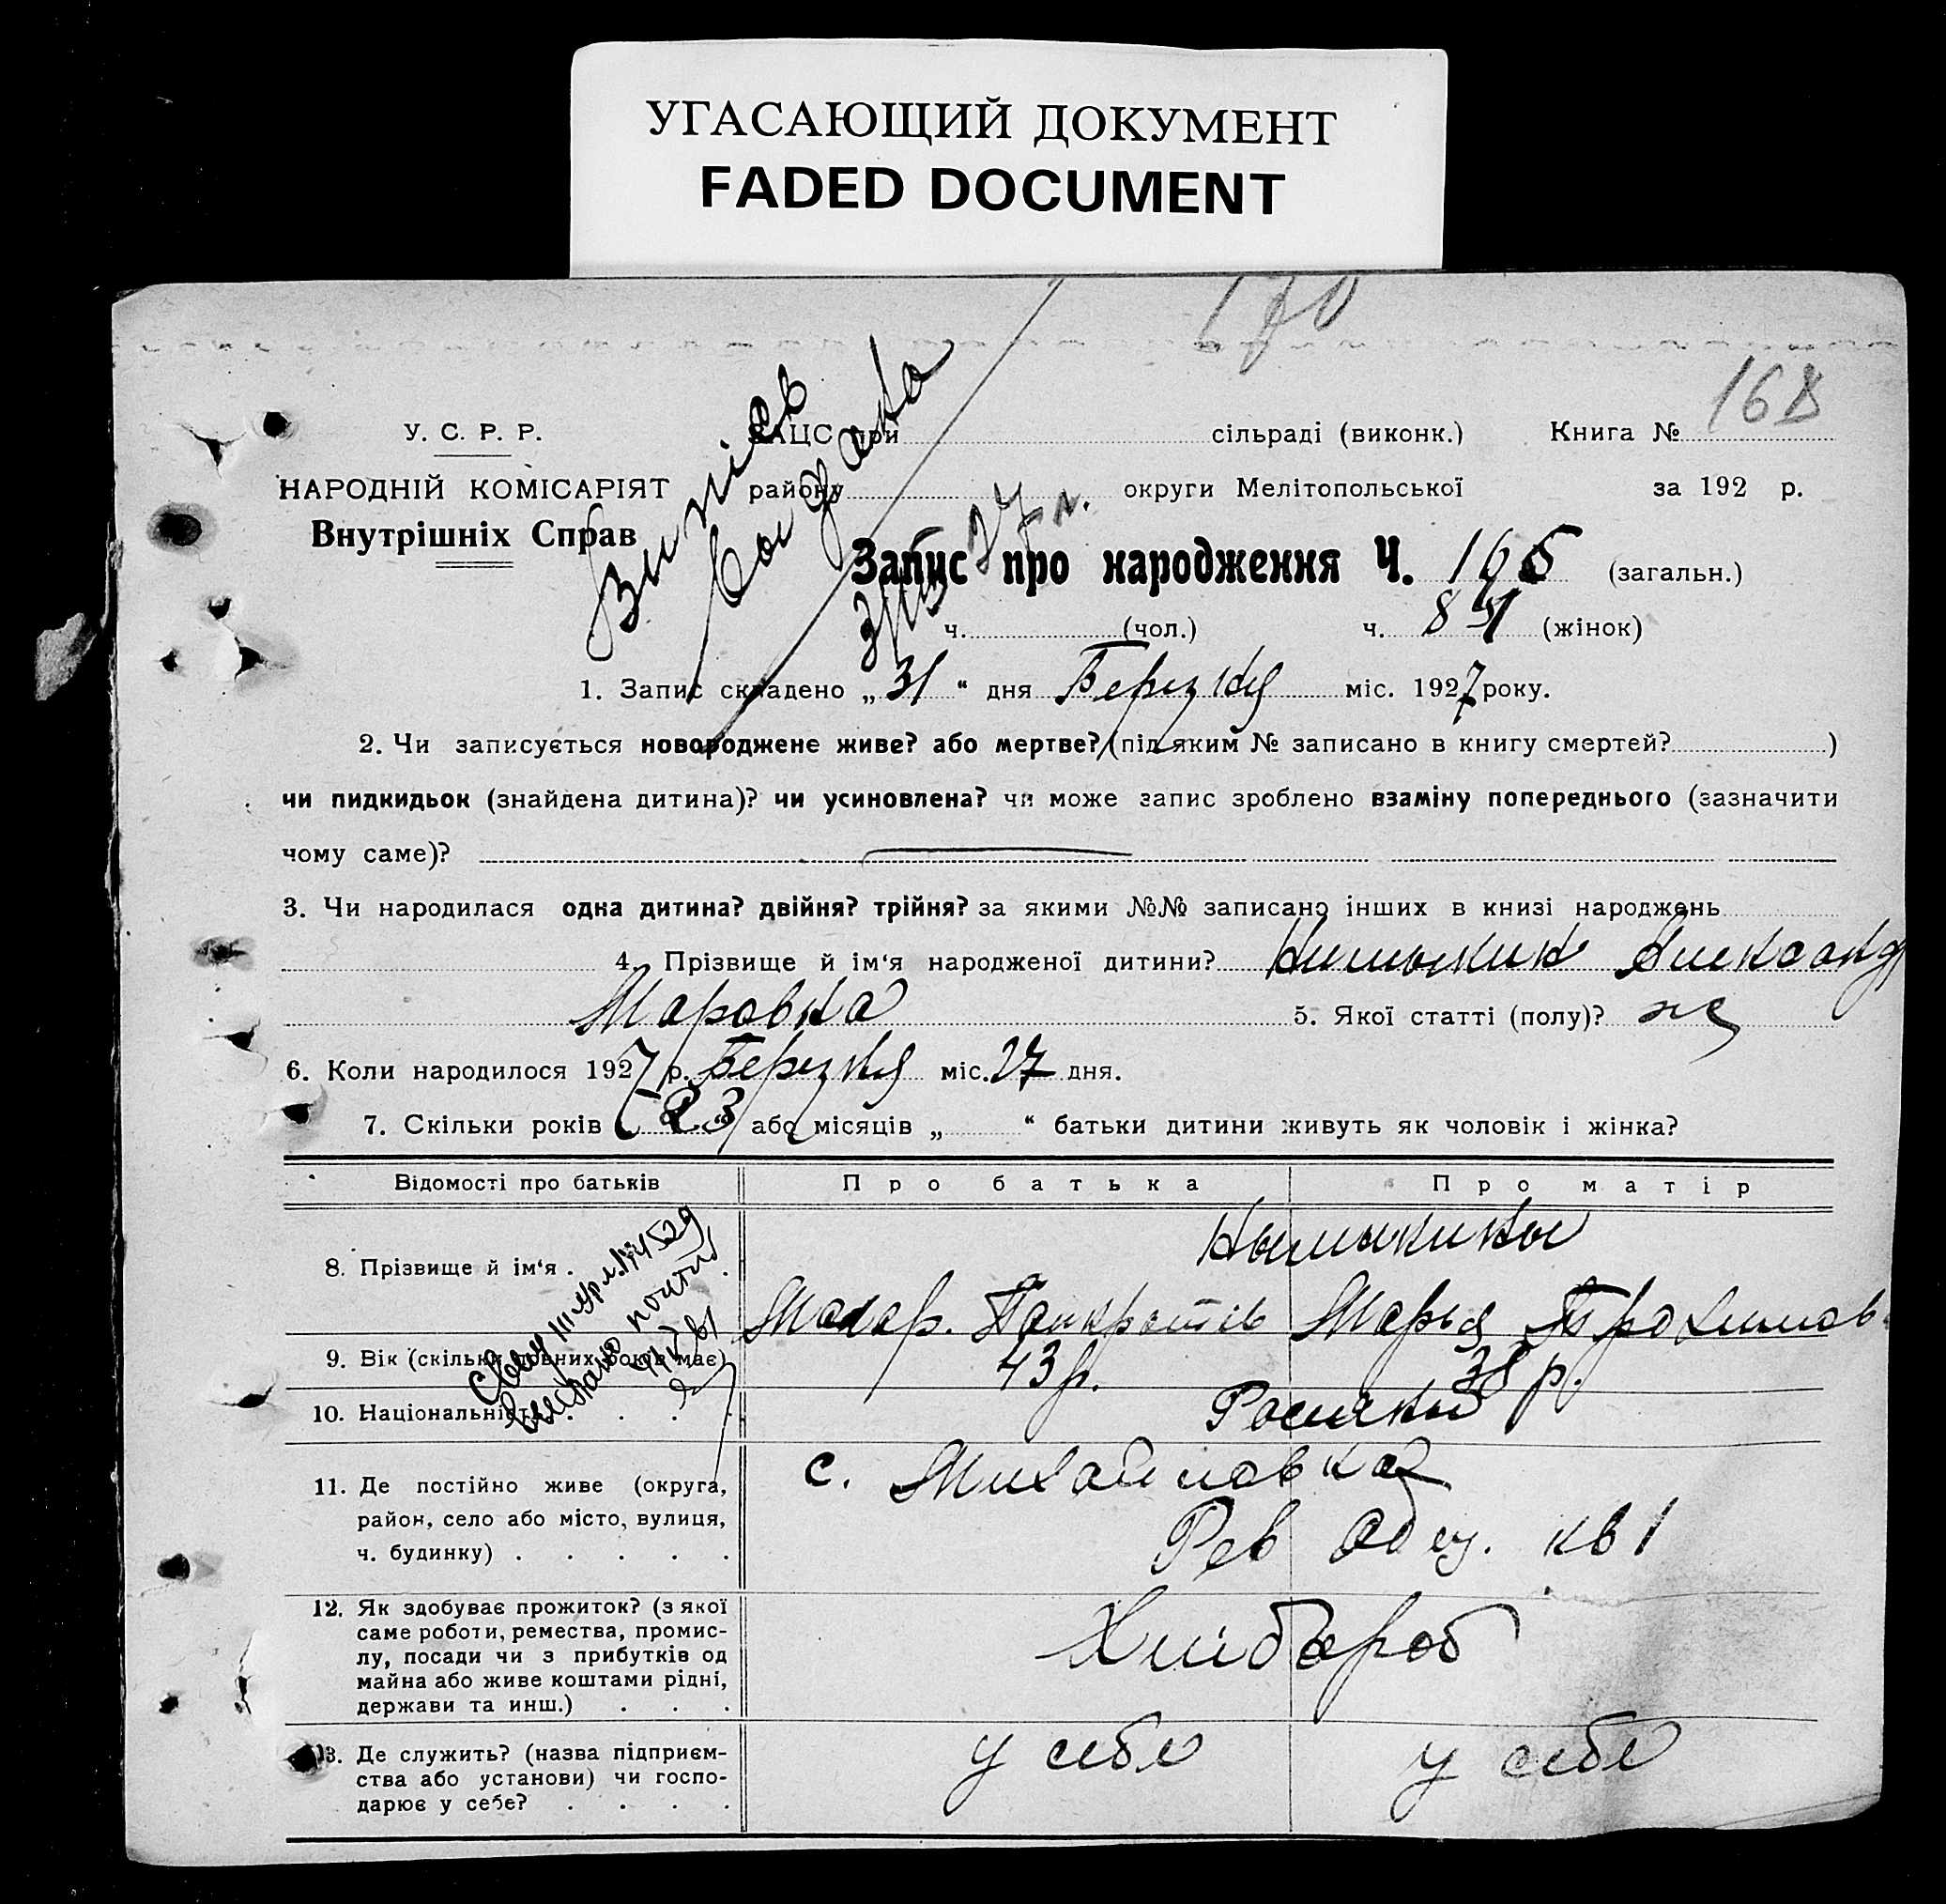 УГАСАЮЩИЙ ДОКУМЕНТ
FADED DOCUMENT
168
У. С. Р. Р.
ЗАЦС при сільраді (виконк.) Книга №
НАРОДНІЙ КОМІСАРІЯТ
району округи Мелітопольської за 192 р.
Внутрішніх Справ
Запис про народження Ч. 165 (загальн.)
ч. (чол.) ч. (жінок)
1. Запис складено „ 31 “ дня Березня міс. 1927 року.
2. Чи записується новороджене живе? або мертве? (під яким № записано в книгу смертей? )
чи пидкидьок (знайдена дитина)? чи усиновлена? чи може запис зроблено взаміну попереднього (зазначити
чому саме)?
3. Чи народилася одна дитина? двійня? трійня? за якими №№ записано інших в книзі народжень
4. Прізвище й ім‘я народженої дитини? Александ
Маровна
5. Якої статті (полу)? ж
6. Коли народилося 1927 р. Березня міс. 27 дня.
7. Скільки років 23 або місяців „ “ батьки дитини живуть як чоловік і жінка?
Відомості про батьків Про батька Про матір
8. Прізвище й ім‘я .
Макар. Панкратів Марья Трохимов
9. Вік (скільки повних років має) 43 р. 38 р.
10. Національність
11. Де постійно живе (округа, район, село або місто, вулиця, ч. будинку)
с. Михайловка
Рев кв 1
12. Як здобуває прожиток? (з якої
саме роботи, ремества, промис-
лу, посади чи з прибутків од
майна або живе коштами рідні,
держави та инш.)
Хліbороб
13. Де служить? (назва підприєм-
ства або установи) чи госпо-
дарює у себе?
у себе у себе